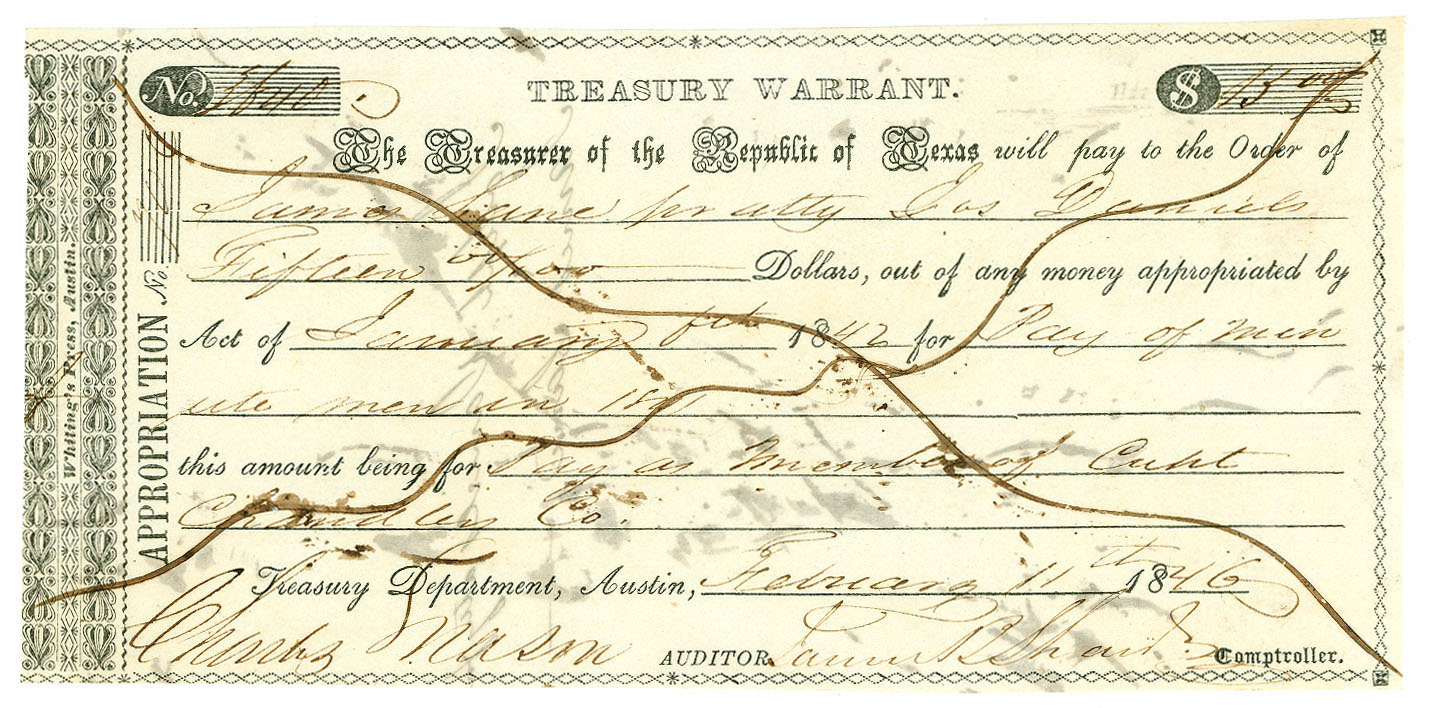 No.
TREASURY WARRANT.
$ 15 00
The Treasurer of the Republic of Texas will pay to the Order of
James Lane pr atty Jos Daniels
Fifteen 00/100 Dollars, out of any money appropriated by
Act of January 6th 1842 for Pay of min
ute men in 184
this amount being for Pay as member of Capt
Chandlers Co.
Treasury Department, Austin, February 11th 1846
Charles Mason AUDITOR James B Shaw Comptroller.
APPROPRIATION No.
Whiting's Press, Austin.